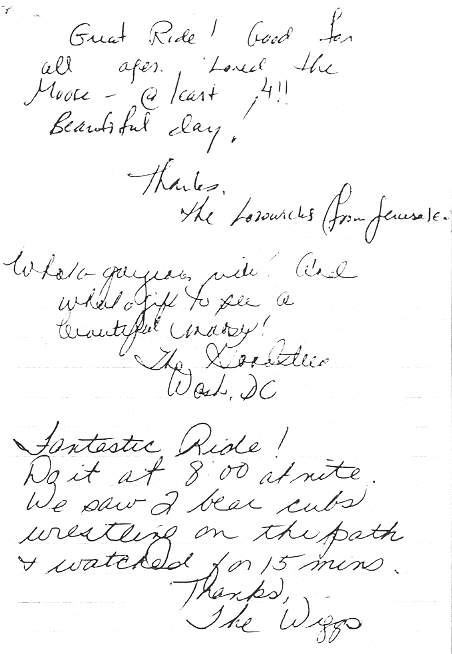 Great Ride! Good for
all ages. Loved the
Moose - @ least 4!!
Beautiful day!
Thanks,
The (from Jerusale
What a gorgeous ride! And
what a gift to see a
beautiful moose!
The
Wash, DC
Fantastic Ride!
Do it at 8:00 at nite.
We saw 2 bear cubs
wrestling on the path
& watched for 15 mins.
Thanks,
The Wiggs